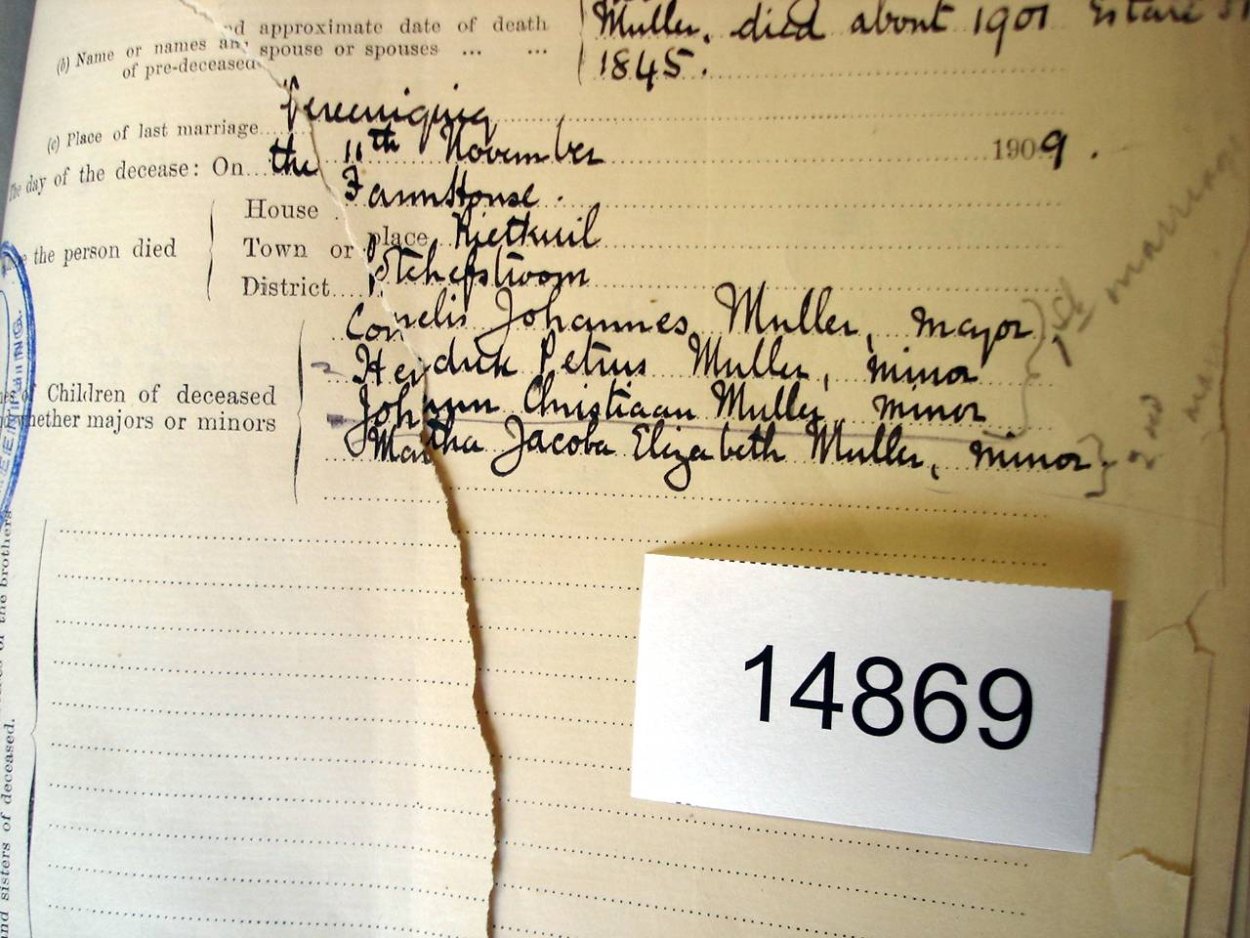 and approximate date of death
(b) Name or names any spouse or spouses ... ...
of pre-deceased
Muller, died about 1901 Estate
1845.
(c) Place of last marriage Vereeniging
The day of the decease: On the 11th November 1909.
House Farm House.
the person died Town or place Rietkuil
District Potchefstroom
Cornelis Johannes Muller, major
Hendrik Petrus Muller, minor
Children of deceased
whether majors or minors
Johann Christiaan Muller, minor
Martha Jacoba Elizabeth Muller, minor.
1st marriage
2nd
14869
and sisters of deceased.
of the brothers